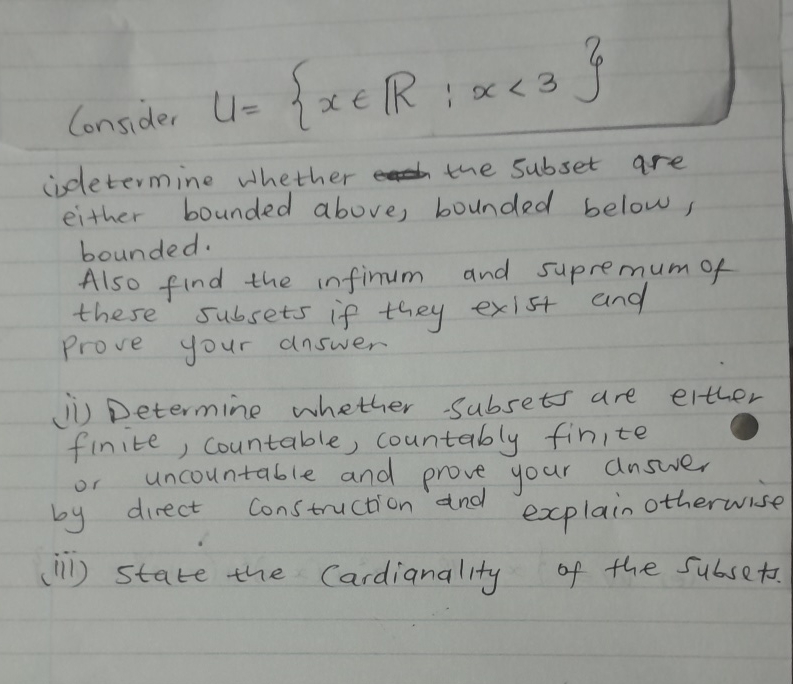 Consider U = { x ∈ ℝ : x < 3 }
i) determine whether the subset are
either bounded above, bounded below,
bounded.
Also find the infimum and supremum of
these subsets if they exist and
prove your answer
ii) Determine whether subsets are either
finite, countable, countably finite
or uncountable and prove your answer
by direct construction and explain otherwise
iii) State the Cardianality of the subsets.